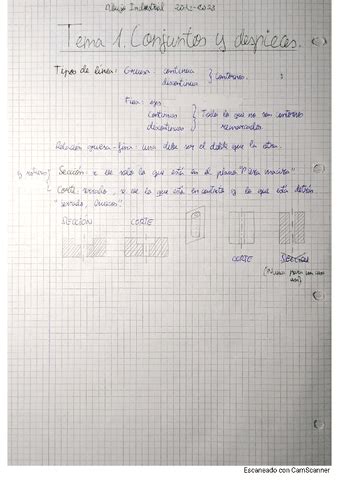 Dibujo Industrial 2022-2023
Tema 1. Conjuntos y despieces.
Tipos de línea: Gruesa: continua
discontinua } contornos.
Fina: ejes
continuas } Todo lo que no son contornos
discontinuas
Relación gruesa-fina una debe ser el doble que la otra.
Sección: se ve solo lo que está en el plano
Corte: se ve lo que está en contacto y lo que está detrás
SECCIÓN CORTE
CORTE SECCIÓN
(Nunca para un caso
así)
Escaneado con CamScanner